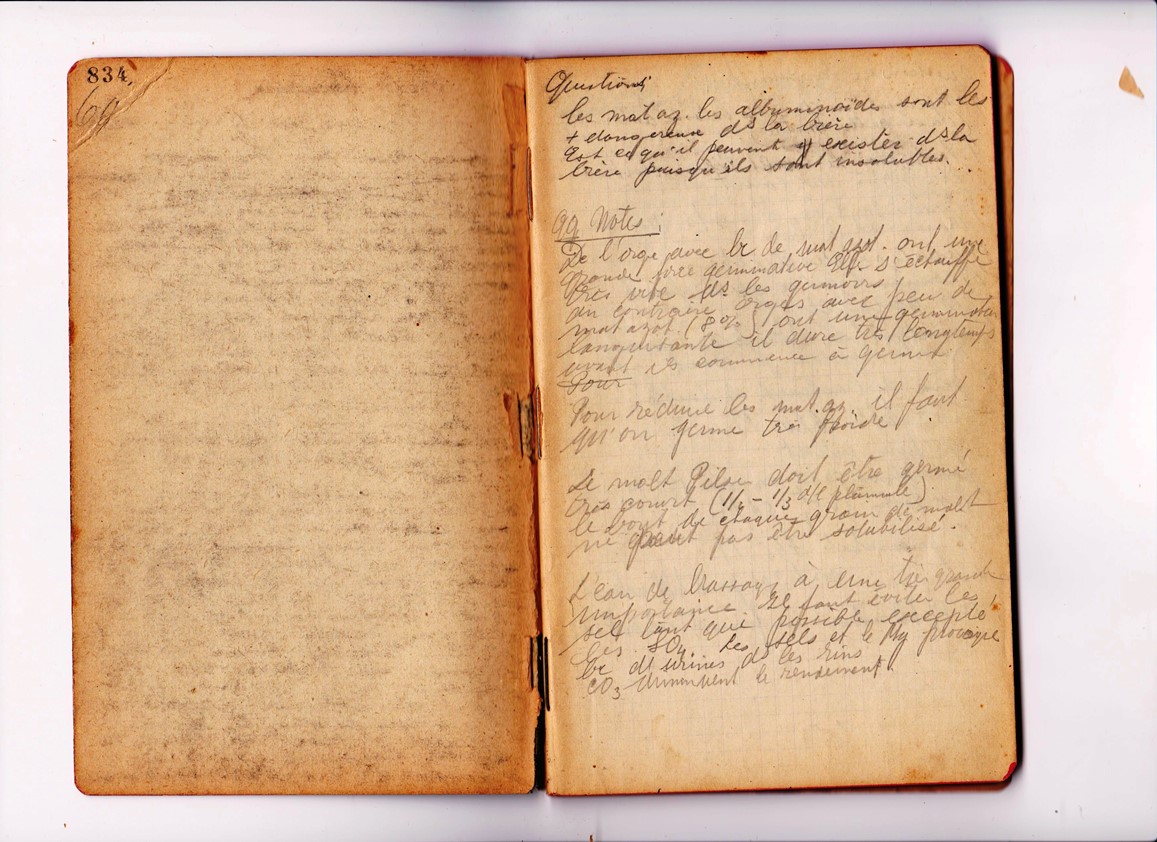 834
69
Questions
les mat az. les albuminoïdes sont les
+ dangereux ds la bière
Est ce qu'il peuvent y exister ds la
bière puisqu'ils sont insolubles.
qq Notes :
De l'orge avec bc de mat azot. ont une
grande force germinative Elle s'échauffe
très vite ds les germoirs
au contraire orges avec peu de
mat azot. (8%) ont une germination
languissante il dure très longtemps
avant ils commence à germer
Pour
Pour réduire les mat. az. il faut
qu'on germe très froide
Le malt Pilsen doit être germé
très court ( - 1/3 de plumule)
le bout de chaque grain de malt
ne peut pas être solubilisé.
L'eau de brassage à une très grande
importance Il faut éviter les
sels tant que possible excepté
les SO4 Les sels et le Mg provoque
bc d'urines ds les rins
CO3 diminuent le rendement.